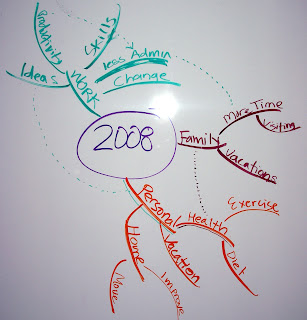 Productivity
Skills
Ideas
WORK
less Admin
Change
2008
Family
More Time
Visiting
Vacations
Personal
Health
Exercise
Diet
Vacation
Home
Move
Improve